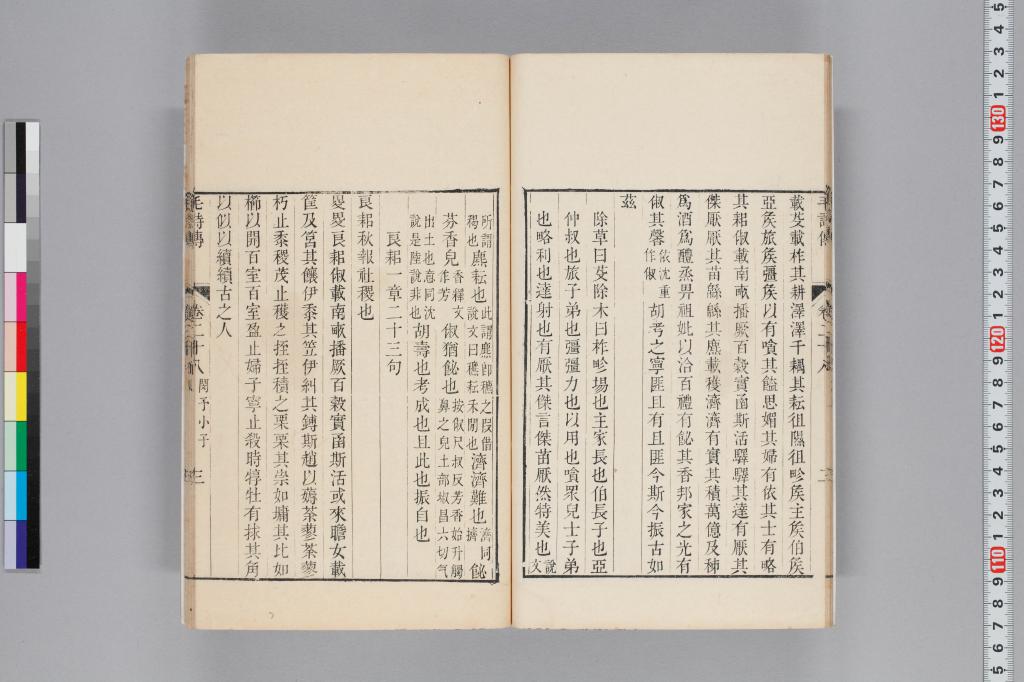 載芟載柞其耕澤澤千耦其耘徂隰徂畛矦主矦伯矦
亞矦旅矦彊矦以有嗿其饁思媚其婦有依其士有略
其耜俶載南畞播厥百穀實函斯活驛驛其達有厭其
傑厭厭其苗緜緜其麃載穫濟濟有實其積萬億及秭
爲酒爲醴烝畀祖妣以洽百禮有飶其香邦家之光有
俶其馨依沈重作俶胡考之寧匪且有且匪今斯今振古如
茲
除草曰芟除木曰柞畛場也主家長也伯長子也亞
仲叔也旅子弟也彊彊力也以用也嗿眾皃士子弟
也略利也達射也有厭其傑言傑苗厭然特美也說文
所謂麃耘也此謂麃卽穮之叚借濟濟難也濟同擠飶
芬香皃香釋文作芳俶猶飶也按俶尺叔反芳香始升觸鼻之皃土部埱昌六切气
出土也意同沈說是陸說非也胡壽也考成也且此也振自也
良耜一章二十三句
良耜秋報社稷也
畟畟良耜俶載南畞播厥百穀實函斯活或來瞻女載
筐及筥其饟伊黍其笠伊糾其鎛斯趙以薅荼蓼荼蓼
朽止黍稷茂止穫之挃挃積之栗栗其崇如墉其比如
櫛以開百室百室盈止婦子寧止殺時犉牡有捄其角
以似以續續古之人
毛詩傳
卷二十八
閔予小子
三